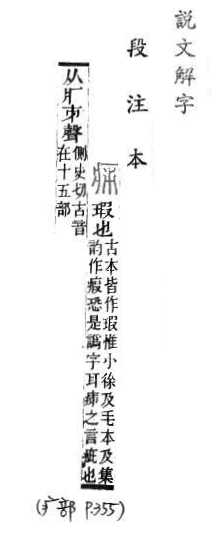 説文解字
段注本
瑕也古本皆作瑕惟小徐及毛本及集
韵作瘕恐是譌字耳之言疵也
从疒𠂔聲側史切古音
在十五部
(疒部 P355)